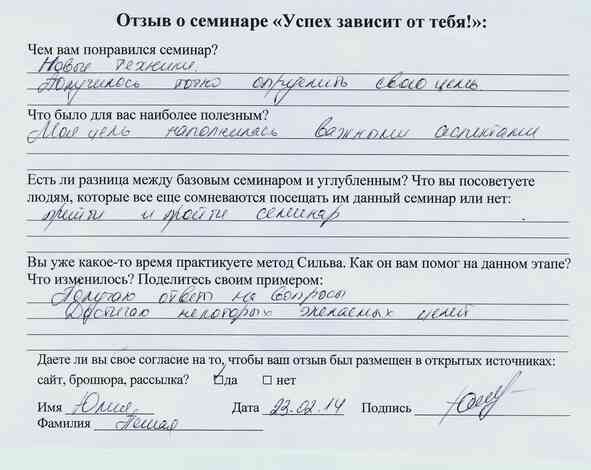 Отзыв о семинаре «Успех зависит от тебя!»:
Чем вам понравился семинар?
Новые техники.
Получилось точно определить свою цель.
Что было для вас наиболее полезным?
Моя цель наполнилась важными аспектами
Есть ли разница между базовым семинаром и углубленным? Что вы посоветуете
людям, которые все еще сомневаются посещать им данный семинар или нет:
прийти и пройти семинар
Вы уже какое-то время практикуете метод Сильва. Как он вам помог на данном этапе?
Что изменилось? Поделитесь своим примером:
Получаю ответ на вопросы
Достигаю некоторых желаемых целей
Даете ли вы свое согласие на то, чтобы ваш отзыв был размещен в открытых источниках:
сайт, брошюра, рассылка? ☑да ☐ нет
Имя Юлия Дата 23.02.14 Подпись
Фамилия